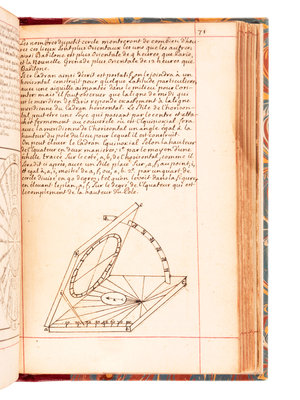 71
Les nombres du petit cercle montrent de combien d'heu
res ces lieux sont plus Orientaux les uns que les autres,
ainsi Babilone est plus Orientale de 4 heures que Paris,
et la Nouvelle Grenade plus Orientale de 12 heures que
Babilone.
Si ce Cadran ainsi décrit est portatif, on le joindra à un
horizontal construit pour quelque Latitude particuliere
avec une aiguille aimantée dans le milieu pour l'ori-
enter mais il faut observer que la ligne de midi qui
est le meridien de Paris reponde exactement à la ligne
meridienne du Cadran horizontal. Le stile de l'horizon-
tal peut estre une soye qui passant par le centre et atta-
ché fermement au couvercle où est l'Equinoxial, fera
avec la meridienne de l'horizontal un angle égal à la
hauteur du pole du lieu pour lequel il est construit.
On peut élever le Cadran Equinoxial selon la hauteur
de l'Equateur en deux manieres, 1° par le moyen d'une
échelle tracée sur le coté, a, b, de l'horizontal, comme il
sera dit cy après, avec un stile placé sur, a, f, au point, i,
et égal à, a, i, moitié de, a, f, ou, a, b. 2° par un quart de
cercle divisé en 90 degrez, tel qu'on le voit dans la figure,
en élevant le plan, a, f, sur le degré de l'Equateur qui est
le complement de la hauteur du Pole.